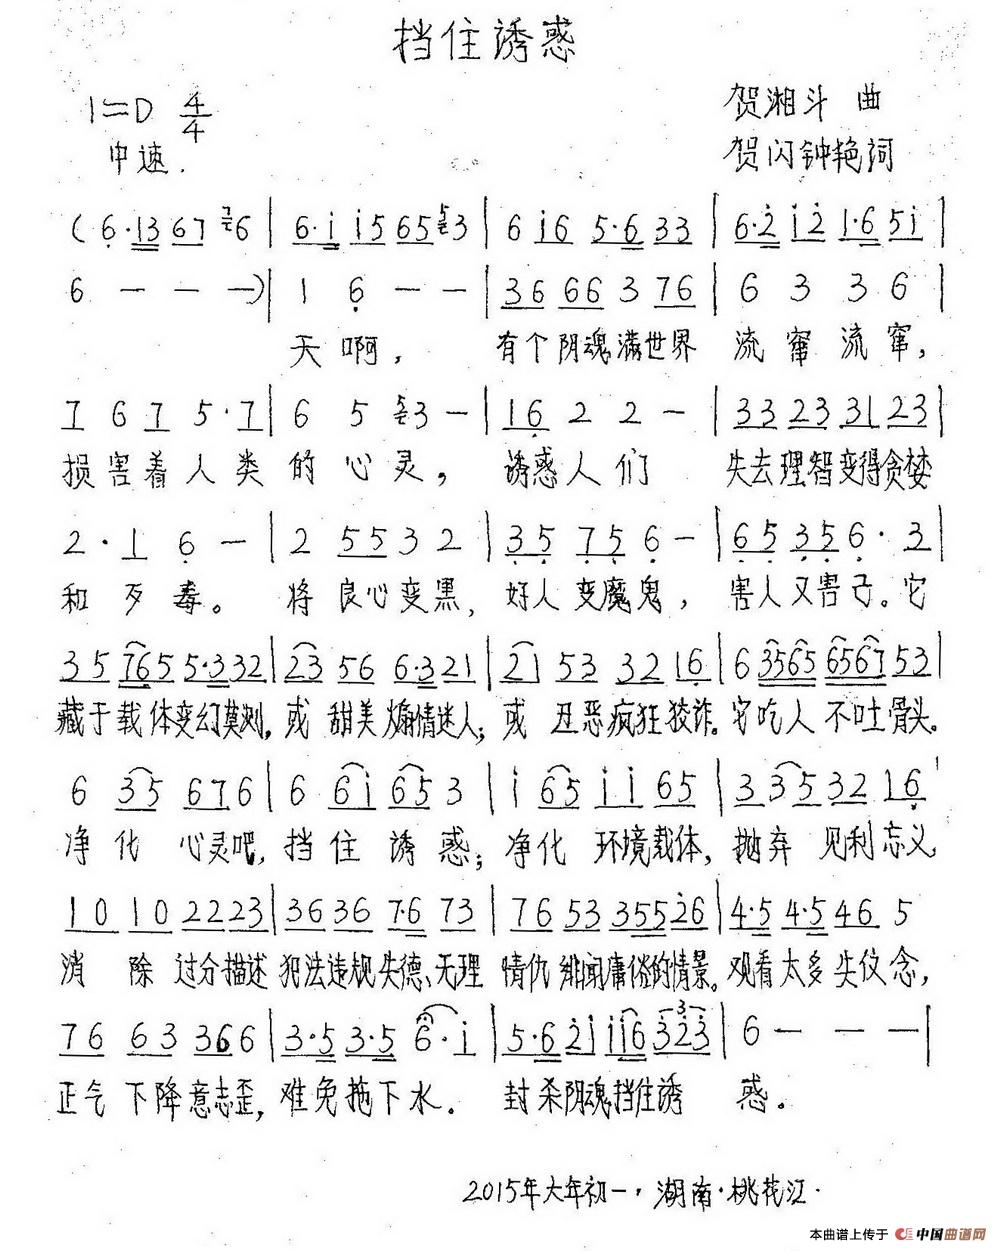 挡住诱惑
1=D 4/4
贺湘斗 曲
中速.
贺闪钟艳词
( 6·13 67 7 6 | 6·i i5 65 5 3 | 6 i6 5·6 33 | 6·2 i2 1·6 5i |
6 — — —) | 1 6 — — | 36 66 3 76 | 6 3 3 6 |
天啊, 有个阴魂满世界 流窜流窜,
7 6 7 5·7 | 6 5 5 3 — | 16 2 2 — | 33 23 31 23 |
损害着人类的心灵。 诱惑人们 失去理智变得贪婪
2·1 6 — | 2 55 3 2 | 35 75 6 — | 65 35 6·3 |
和歹毒。 将良心变黑, 好人变魔鬼, 害人又害己。它
35 765 5·332 | 23 56 6·321 | 21 53 32 16 | 6 3565 6567 53 |
藏于载体变幻莫测, 或甜美煽情迷人; 或丑恶疯狂狡诈。它吃人不吐骨头。
6 35 676 | 6 6i 65 3 | i 65 ii 65 | 3 35 32 16 |
净化心灵吧, 挡住诱惑; 净化环境载体, 抛弃见利忘义
10 10 2223 | 3636 7·6 73 | 76 53 355 26 | 4·5 4·5 46 5
消除过分描述犯法违规失德、无理情仇绯闻庸俗的情景。观看太多失仪念,
76 63 366 | 3·5 3·5 6·i | 5·6 2i ii6 323 | 6 — — — |
正气下降意志歪, 难免拖下水. 封杀阴魂挡住诱惑。
2015年大年初一, 湖南·桃花江.
本曲谱上传于 中国曲谱网